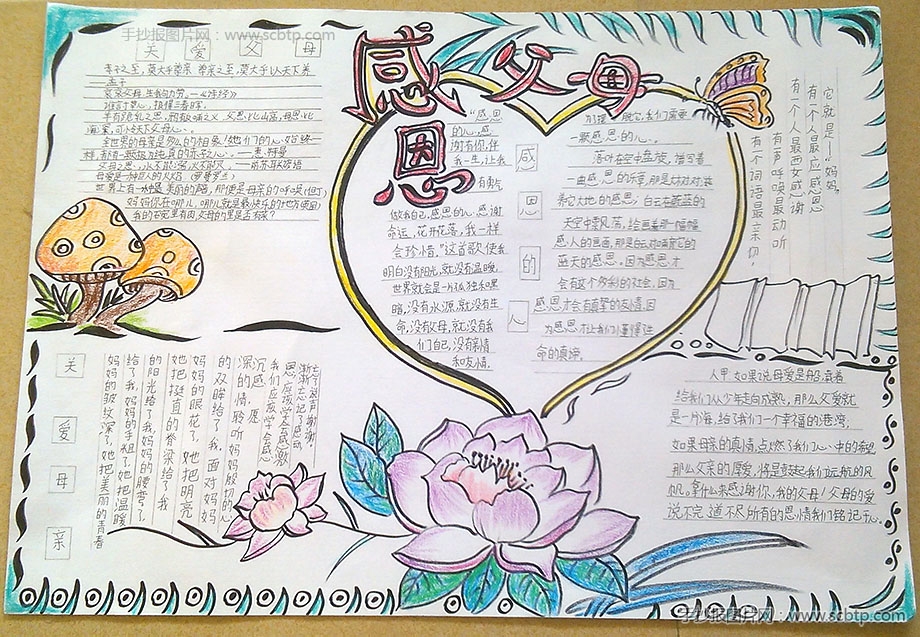 手抄报图片网：www.scbtp.com
关爱父母
孝子之至，莫大乎尊亲 尊亲之至，莫大乎以天下养
孟子
哀哀父母，生我劬劳。——《诗经》
谁言寸草心，报得三春晖。
羊有跪乳之恩，鸦有哺之义
世界上有一种最美丽的声音，那便是母亲的呼唤(但丁)
妈妈你在哪儿，哪儿就是最快乐的地方(英国)
感恩父母
“感恩
的心，感
谢有你，伴
我一生，让我
有勇气
做我自己，感恩的心，感谢
命运，花开花落，我一样
会珍惜。”这首歌，使我
明白没有阳光，就没有温暖，
世界就会是一片孤独和黑
暗，没有水源，就没有生
命，没有父母，就没有我
们自己，没有亲情
和友情，
感恩的人
我们需要
一颗感恩的心。
落叶在空中盘旋，谱写着
一曲感恩的乐章，那是大树对滋
养它大地的感恩；白云在蔚蓝的
天空中飘荡，绘画着那一幅幅
感人的画面，那是白云对哺育它的
蓝天的感恩。因为感恩才
会有这个多彩的社会，因为
感恩才会有真挚的友情，因
为感恩才让我们懂得生
命的真谛。
它就是——妈妈，
有一个人最应感恩
有一个人最要感谢
有一声呼唤最动听
有一个词语最亲切，
关爱母亲
深沉的情，
我们应该学会感激
的双眸给了我，面对妈妈
妈妈的眼花了，她把明亮
她把挺直的脊梁给了我
的阳光给了我，妈妈的腰弯了，
给了我，妈妈的手粗了，她把温暖
妈妈的皱纹深了，她把美丽的青春
人甲：如果说母爱是船，载着
给我们从少年走向成熟，那么父爱就
是一片海，给了我们一个幸福的港湾，
如果母亲的真情，点燃了我们心中的希望
那么父亲的厚爱，将是鼓起我们远航的风
帆。拿什么来感谢你，我的父母！父母的爱
说不完 道不尽所有的恩情我们铭记于心。
手抄报图片网：www.scbtp.com